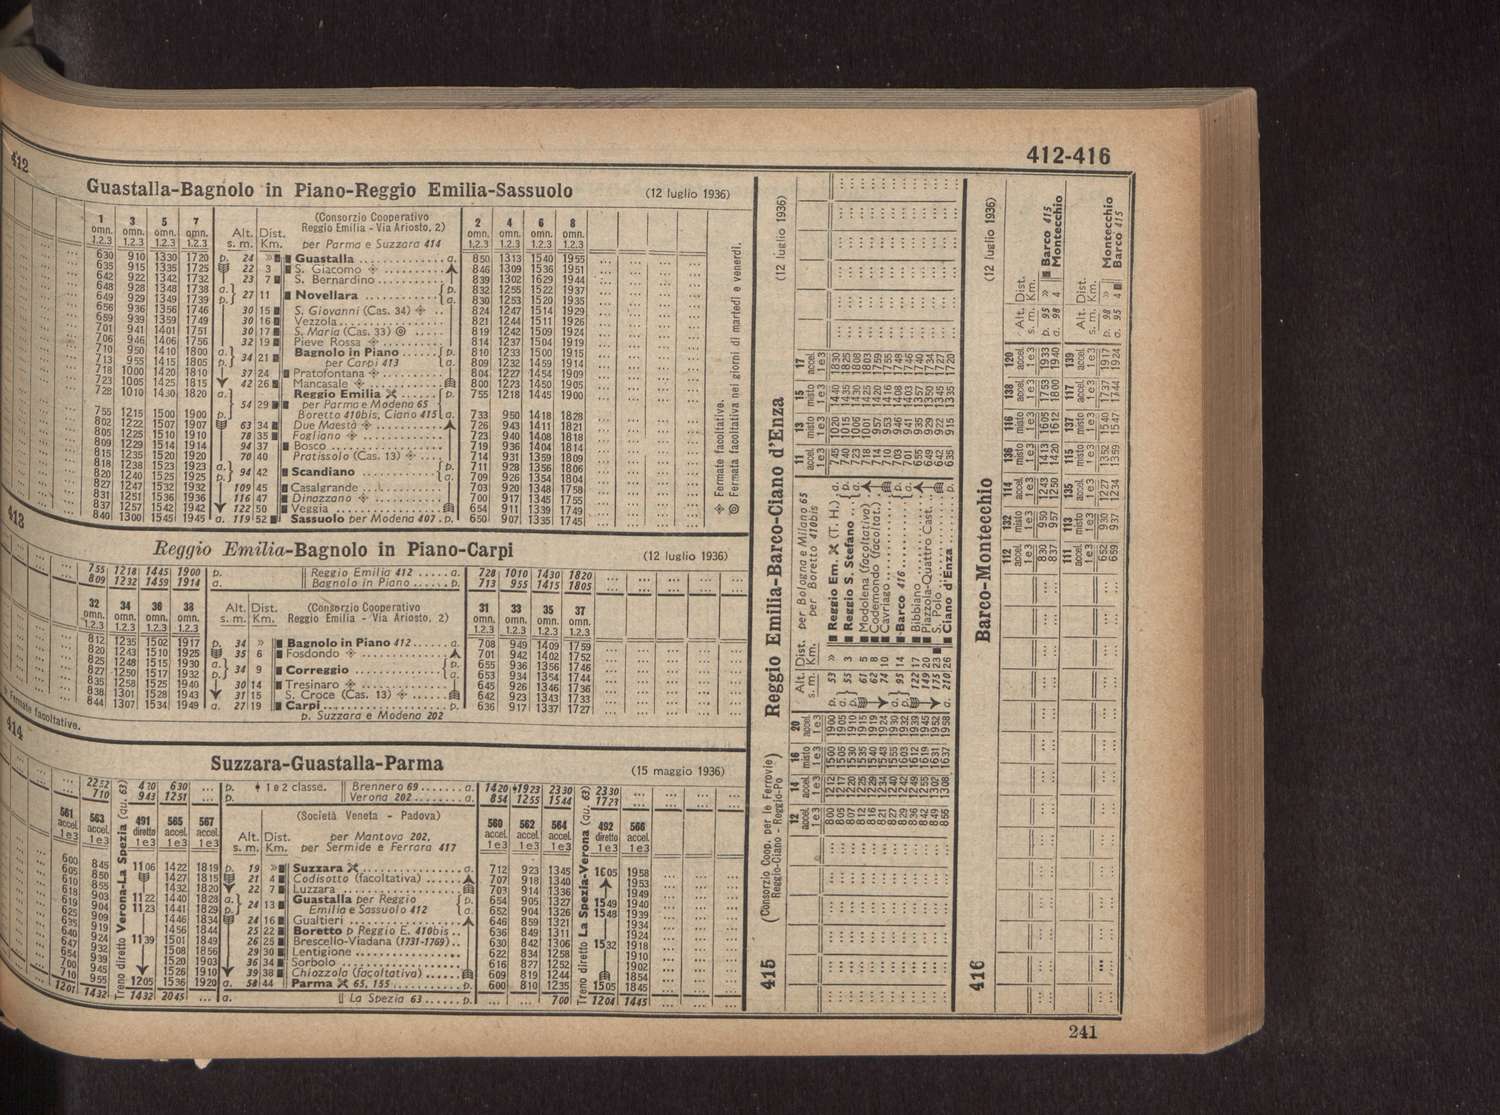 412
412-416
Guastalla-Bagnolo in Piano-Reggio Emilia-Sassuolo (12 luglio 1936)
1 3 5 7 (Consorzio Cooperativo 2 4 6 8
omn. omn. omn. omn. Alt. Dist. Reggio Emilia - Via Ariosto, 2) omn. omn. omn. omn.
1.2.3 1.2.3 1.2.3 1.2.3 s. m. Km. per Parma e Suzzara 414 1.2.3 1.2.3 1.2.3 1.2.3
630 910 1330 1720 p. 24 » Guastalla a. 850 1313 1540 1955
635 915 1335 1725 22 3 S. Giacomo 846 1309 1536 1951
642 922 1342 1732 23 7 S. Bernardino 839 1302 1629 1944
648 928 1348 1738 a. p. 832 1255 1522 1937
649 929 1349 1739 p. 27 11 Novellara a. 830 1253 1520 1935
656 936 1356 1746 30 15 S. Giovanni (Cas. 34) 824 1247 1514 1929
659 939 1359 1749 30 16 Vezzola 821 1244 1511 1926
701 941 1401 1751 30 17 S. Maria (Cas. 33) 819 1242 1509 1924
706 946 1406 1756 32 19 Pieve Rossa 814 1237 1504 1919
710 950 1410 1800 a. 34 21 Bagnolo in Piano p. 810 1233 1500 1915
713 955 1415 1805 p. per Carpi 413 a. 809 1232 1459 1914
718 1000 1420 1810 37 24 Pratofontana 804 1227 1454 1909
723 1005 1425 1815 42 26 Mancasale 800 1223 1450 1905
728 1010 1430 1820 a. Reggio Emilia p. 755 1218 1445 1900
54 29 per Parma e Modena 65
755 1215 1500 1900 p. Boretto 410bis, Ciano 415 a. 733 950 1418 1828
802 1222 1507 1907 63 34 Due Maestà 726 943 1411 1821
805 1225 1510 1910 78 35 Fogliano 723 940 1408 1818
809 1229 1514 1914 94 37 Bosco 719 936 1404 1814
815 1235 1520 1920 70 40 Pratissolo (Cas. 13) 714 931 1359 1809
818 1238 1523 1923 a. p. 711 928 1356 1806
820 1240 1525 1925 p. 94 42 Scandiano a. 709 926 1354 1804
827 1247 1532 1932 109 45 Casalgrande 703 920 1348 1758
831 1251 1536 1936 116 47 Dinazzano 700 917 1345 1755
837 1257 1542 1942 122 50 Veggia 654 911 1339 1749
840 1300 1545 1945 a. 119 52 Sassuolo per Modena 407 p. 650 907 1335 1745
Fermate facoltative.
Fermata facoltativa nei giorni di martedì e venerdì.
413
Reggio Emilia-Bagnolo in Piano-Carpi (12 luglio 1936)
755 1218 1445 1900 p. Reggio Emilia 412 a. 728 1010 1430 1820
809 1232 1459 1914 a. Bagnolo in Piano p. 713 955 1415 1805
32 34 36 38 31 33 35 37
omn. omn. omn. omn. Alt. Dist. (Consorzio Cooperativo omn. omn. omn. omn.
1.2.3 1.2.3 1.2.3 1.2.3 s. m. Km. Reggio Emilia - Via Ariosto, 2) 1.2.3 1.2.3 1.2.3 1.2.3
812 1235 1502 1917 p. 34 » Bagnolo in Piano 412 a. 708 949 1409 1759
820 1243 1510 1925 35 6 Fosdondo 701 942 1402 1752
825 1248 1515 1930 a. p. 655 936 1356 1746
827 1250 1517 1932 p. 34 9 Correggio a. 653 934 1354 1744
835 1258 1525 1940 30 14 Tresinaro 645 926 1346 1736
838 1301 1528 1943 31 15 S. Croce (Cas. 13) 642 923 1343 1733
844 1307 1534 1949 a. 27 19 Carpi p. 636 917 1337 1727
p. Suzzara e Modena 202
Fermate facoltative.
414
Suzzara-Guastalla-Parma (15 maggio 1936)
2252 430 630 ... p. 1 e 2 classe. Brennero 69 a. 1420 1923 2330 2330
710 943 1251 ... p. Verona 202 a. 854 1255 1544 1723
561 563 491 565 567 (Società Veneta - Padova) 560 562 564 492 566
accel. accel. diretto accel. accel. Alt. Dist. per Mantova 202, accel. accel. accel. diretto accel.
1 e 3 1 e 3 1 e 3 1 e 3 1 e 3 s. m. Km. per Sermide e Ferrara 417 1 e 3 1 e 3 1 e 3 1 e 3 1 e 3
Treno diretto Verona-La Spezia (qu. 63)
Treno diretto La Spezia-Verona (qu. 63)
600 845 1106 1422 1819 p. 19 » Suzzara a. 712 923 1345 1605 1958
605 850 1427 1815 21 4 Codisotto (facoltativa) 707 918 1340 1953
610 855 1432 1820 22 7 Luzzara 703 914 1336 1949
618 903 1122 1440 1828 a. 24 13 Guastalla per Reggio p. 654 905 1327 1549 1940
619 904 1123 1441 1829 p. Emilia e Sassuolo 412 a. 652 904 1326 1548 1939
625 909 1446 1834 24 16 Gualtieri 646 859 1321 1934
635 919 1456 1844 25 22 Boretto p Reggio E. 410bis 636 849 1311 1924
640 924 1139 1501 1849 26 25 Brescello-Viadana (1731-1769) 630 842 1306 1532 1918
647 932 1508 1856 29 30 Lentigione 622 834 1258 1910
654 939 1520 1903 36 34 Sorbolo 616 827 1252 1902
700 945 1526 1910 39 38 Chiozzola (facoltativa) 609 819 1244 1854
710 955 1205 1536 1920 a. 58 44 Parma 65, 155 p. 600 810 1235 1505 1845
1201 1432 1432 2045 ... a. La Spezia 63 p. ... ... 700 1204 1445
415
Reggio Emilia-Barco-Ciano d'Enza (12 luglio 1936)
(Consorzio Coop. per le Ferrovie)
Reggio-Ciano - Reggio-Po
12 14 16 20 Alt. Dist. per Bologna e Milano 65 11 13 15 17
accel. accel. misto accel. s. m. Km. per Boretto 410bis accel. misto misto accel.
1 e 3 1 e 3 1 e 3 1 e 3 1 e 3 1 e 3 1 e 3 1 e 3
800 1212 1500 1900 p. 53 » Reggio Em. (T. H.) a. 745 1020 1440 1830
805 1217 1505 1905 a. 55 3 Reggio S. Stefano p. 740 1015 1435 1825
807 1220 1530 1910 p. a. 723 1006 1430 1808
812 1225 1535 1915 61 5 Modolena (facoltativa) 718 1001 1425 1803
816 1229 1540 1919 62 8 Codemondo (facoltat.) 714 957 1420 1759
821 1234 1548 1924 74 10 Cavriago 710 953 1416 1755
827 1240 1555 1930 a. 95 14 Barco 416 p. 703 946 1408 1748
829 1242 1603 1932 p. a. 701 941 1403 1746
836 1249 1612 1939 122 17 Bibbiano 655 935 1357 1740
842 1255 1619 1945 149 20 Piazzola-Quattro Cast. 649 929 1350 1734
849 1302 1631 1952 175 23 S. Polo 642 922 1345 1727
855 1308 1637 1958 a. 210 26 Ciano d'Enza p. 635 915 1335 1720
416
Barco-Montecchio (12 luglio 1936)
112 132 114 136 116 138 120 Alt. Dist.
accel. misto accel. misto misto accel. accel. s. m. Km.
1 e 3 1 e 3 1 e 3 1 e 3 1 e 3 1 e 3 1 e 3
830 950 1243 1413 1605 1753 1933 p. 95 » Barco 415
837 957 1250 1420 1612 1800 1940 a. 98 4 Montecchio
111 113 135 115 137 117 139 Alt. Dist.
accel. misto accel. misto misto accel. accel. s. m. Km.
1 e 3 1 e 3 1 e 3 1 e 3 1 e 3 1 e 3 1 e 3
652 930 1227 1352 1540 1737 1917 p. 98 » Montecchio
659 937 1234 1359 1547 1744 1924 a. 95 4 Barco 415
241